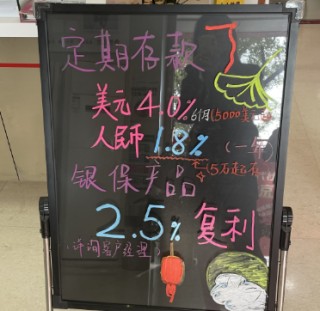 定期存款
美元4.0% 6个月(5000美元起)
人民币 1.8% (一年)
(5万起存)
银保产品
2.5% 复利
(详询客户经理)